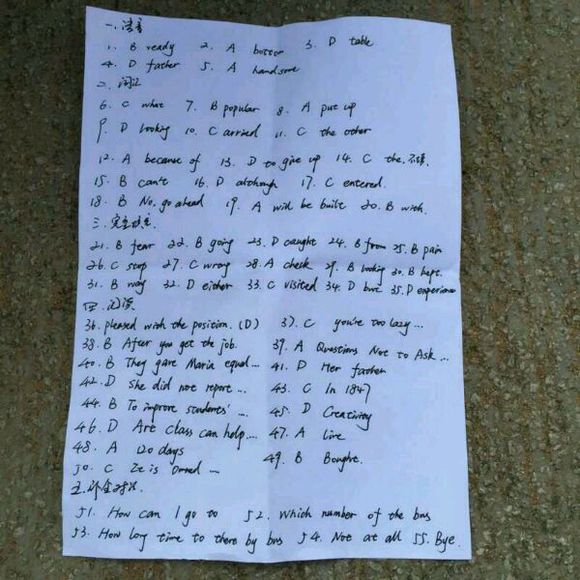 一. 语音
1. B ready 2. A bottom 3. D table
4. D father 5. A handsome
二. 词汇
6. C what 7. B popular 8. A put up
9. D looking 10. C arried 11. C the other
12. A because of 13. D to give up 14. C the,
15. B can't 16. D although 17. C entered.
18. B No, go ahead 19. A will be built 20. B with.
三. 完型
21. B fear 22. B going 23. D caught 24. B from 25. B pain
26. C stop 27. C wrong 28. A check 29. B looking 30. B kept.
31. B way 32. D either 33. C visited 34. D but 35. D experience
四. 阅读
36. pleased with the position. (D) 37. C you're too lazy...
38. B After you get the job. 39. A Questions Not to Ask...
40. B They gave Maria equal... 41. D Her father
42. D She did not report... 43. C In 1847
44. B To improve students'... 45. D Creativity
46. D Art class can help... 47. A live
48. A 120 days 49. B Bought.
50. C
五. 补全对话
51. How can I go to 52. Which number of the bus
53. How long time to there by bus 54. Not at all 55. Bye.